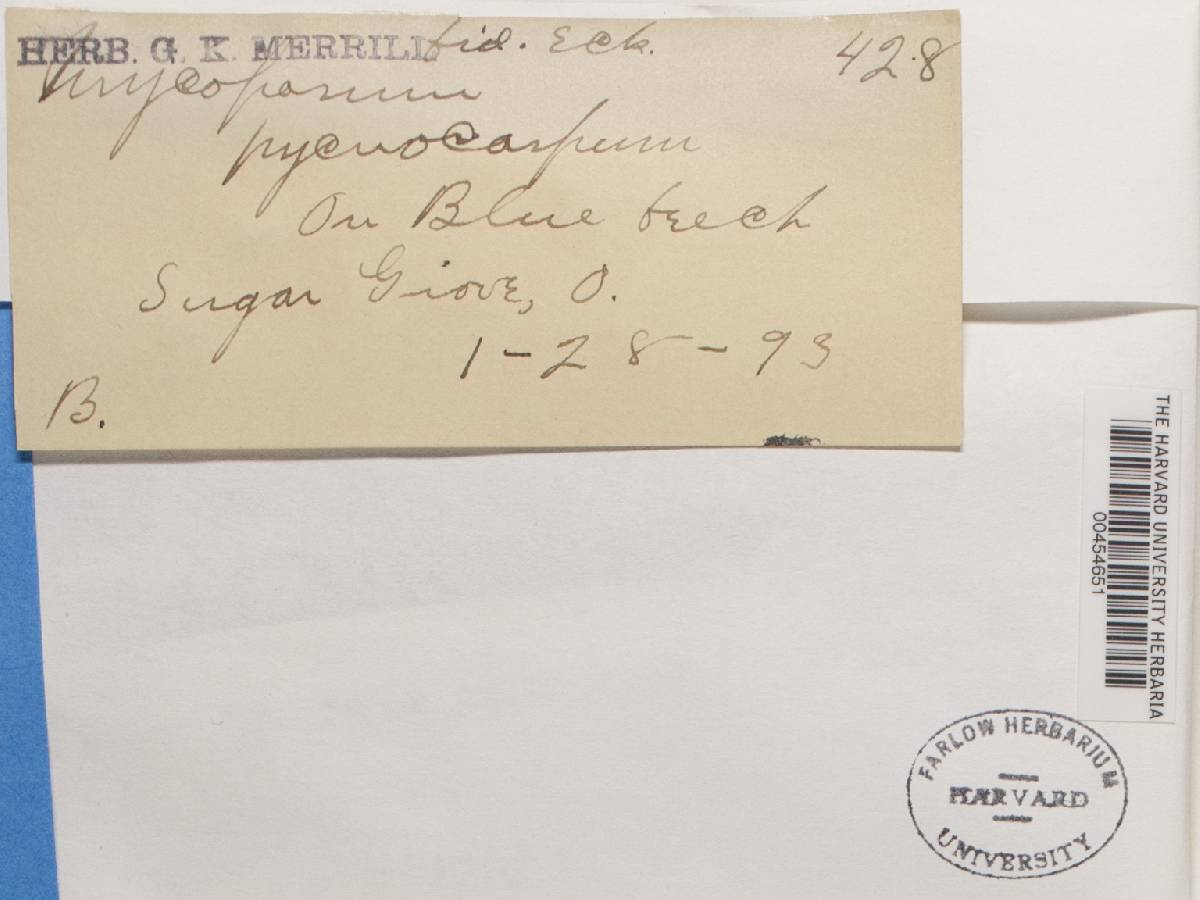 HERB. G. K. MERRILL fid. Eck. 428
Mycoporum
pycnocarpum
On Blue beech
Sugar Grove, O.
1-28-93
B.
THE HARVARD UNIVERSITY HERBARIA
00454651
FARLOW HERBARIUM
HARVARD
UNIVERSITY